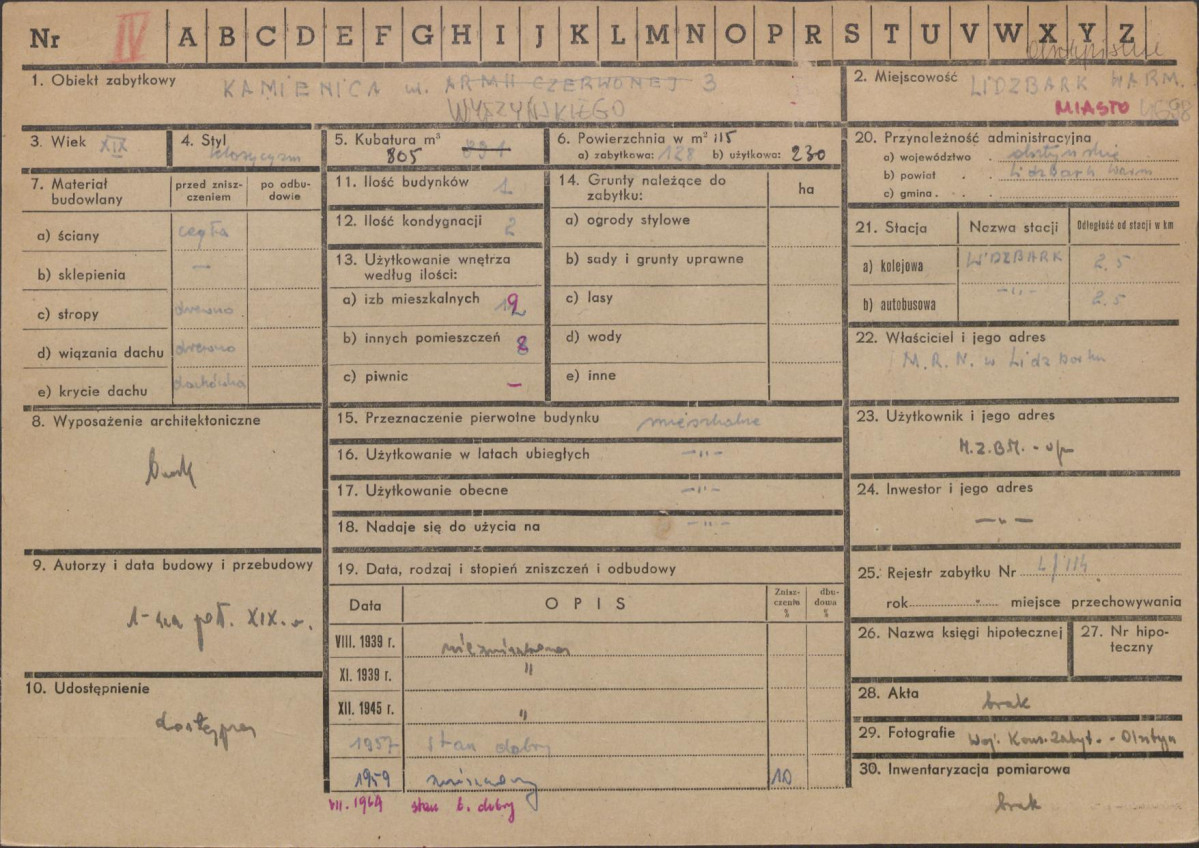 Nr IV A B C D E F G H I J K L M N O P R S T U V W X Y Z
1. Obiekt zabytkowy KAMIENICA ul. ARMII CZERWONEJ 3
WYSZYŃSKIEGO
2. Miejscowość LIDZBARK WARM.
MIASTO
3. Wiek XIX
4. Styl klasycyzm
5. Kubatura m³ 891
805
6. Powierzchnia w m² 115
a) zabytkowa: 128 b) użytkowa: 230
7. Materiał budowlany
przed zniszczeniem
po odbudowie
a) ściany cegła
b) sklepienia —
c) stropy drewno
d) wiązania dachu drewno
e) krycie dachu dachówka
8. Wyposażenie architektoniczne
brak
9. Autorzy i data budowy i przebudowy
1-sza poł. XIX w.
10. Udostępnienie
dostępny
11. Ilość budynków 1
12. Ilość kondygnacji 2
13. Użytkowanie wnętrza
według ilości:
a) izb mieszkalnych 12
b) innych pomieszczeń 8
c) piwnic —
14. Grunty należące do
zabytku:
ha
a) ogrody stylowe
b) sady i grunty uprawne
c) lasy
d) wody
e) inne
15. Przeznaczenie pierwotne budynku mieszkalne
16. Użytkowanie w latach ubiegłych —„—
17. Użytkowanie obecne —„—
18. Nadaje się do użycia na —„—
19. Data, rodzaj i stopień zniszczeń i odbudowy
Data OPIS Zniszczenia % dbudowa %
VIII. 1939 r. niezniszczona
XI. 1939 r. "
XII. 1945 r. "
1957 stan dobry
1959 10
VII. 1964 stan b. dobry
20. Przynależność administracyjna
a) województwo olsztyńskie
b) powiat Lidzbark Warm
c) gmina
21. Stacja Nazwa stacji Odległość od stacji w km
a) kolejowa LIDZBARK 2,5
b) autobusowa —„— 2,5
22. Właściciel i jego adres
M.R.N. w Lidzbarku
23. Użytkownik i jego adres
M.Z.B.M. -
24. Inwestor i jego adres
—„—
25. Rejestr zabytku Nr L/114
rok miejsce przechowywania
26. Nazwa księgi hipotecznej
27. Nr hipoteczny
28. Akta
brak
29. Fotografie Woj. Kons. Zabyt. - Olsztyn
30. Inwentaryzacja pomiarowa
brak